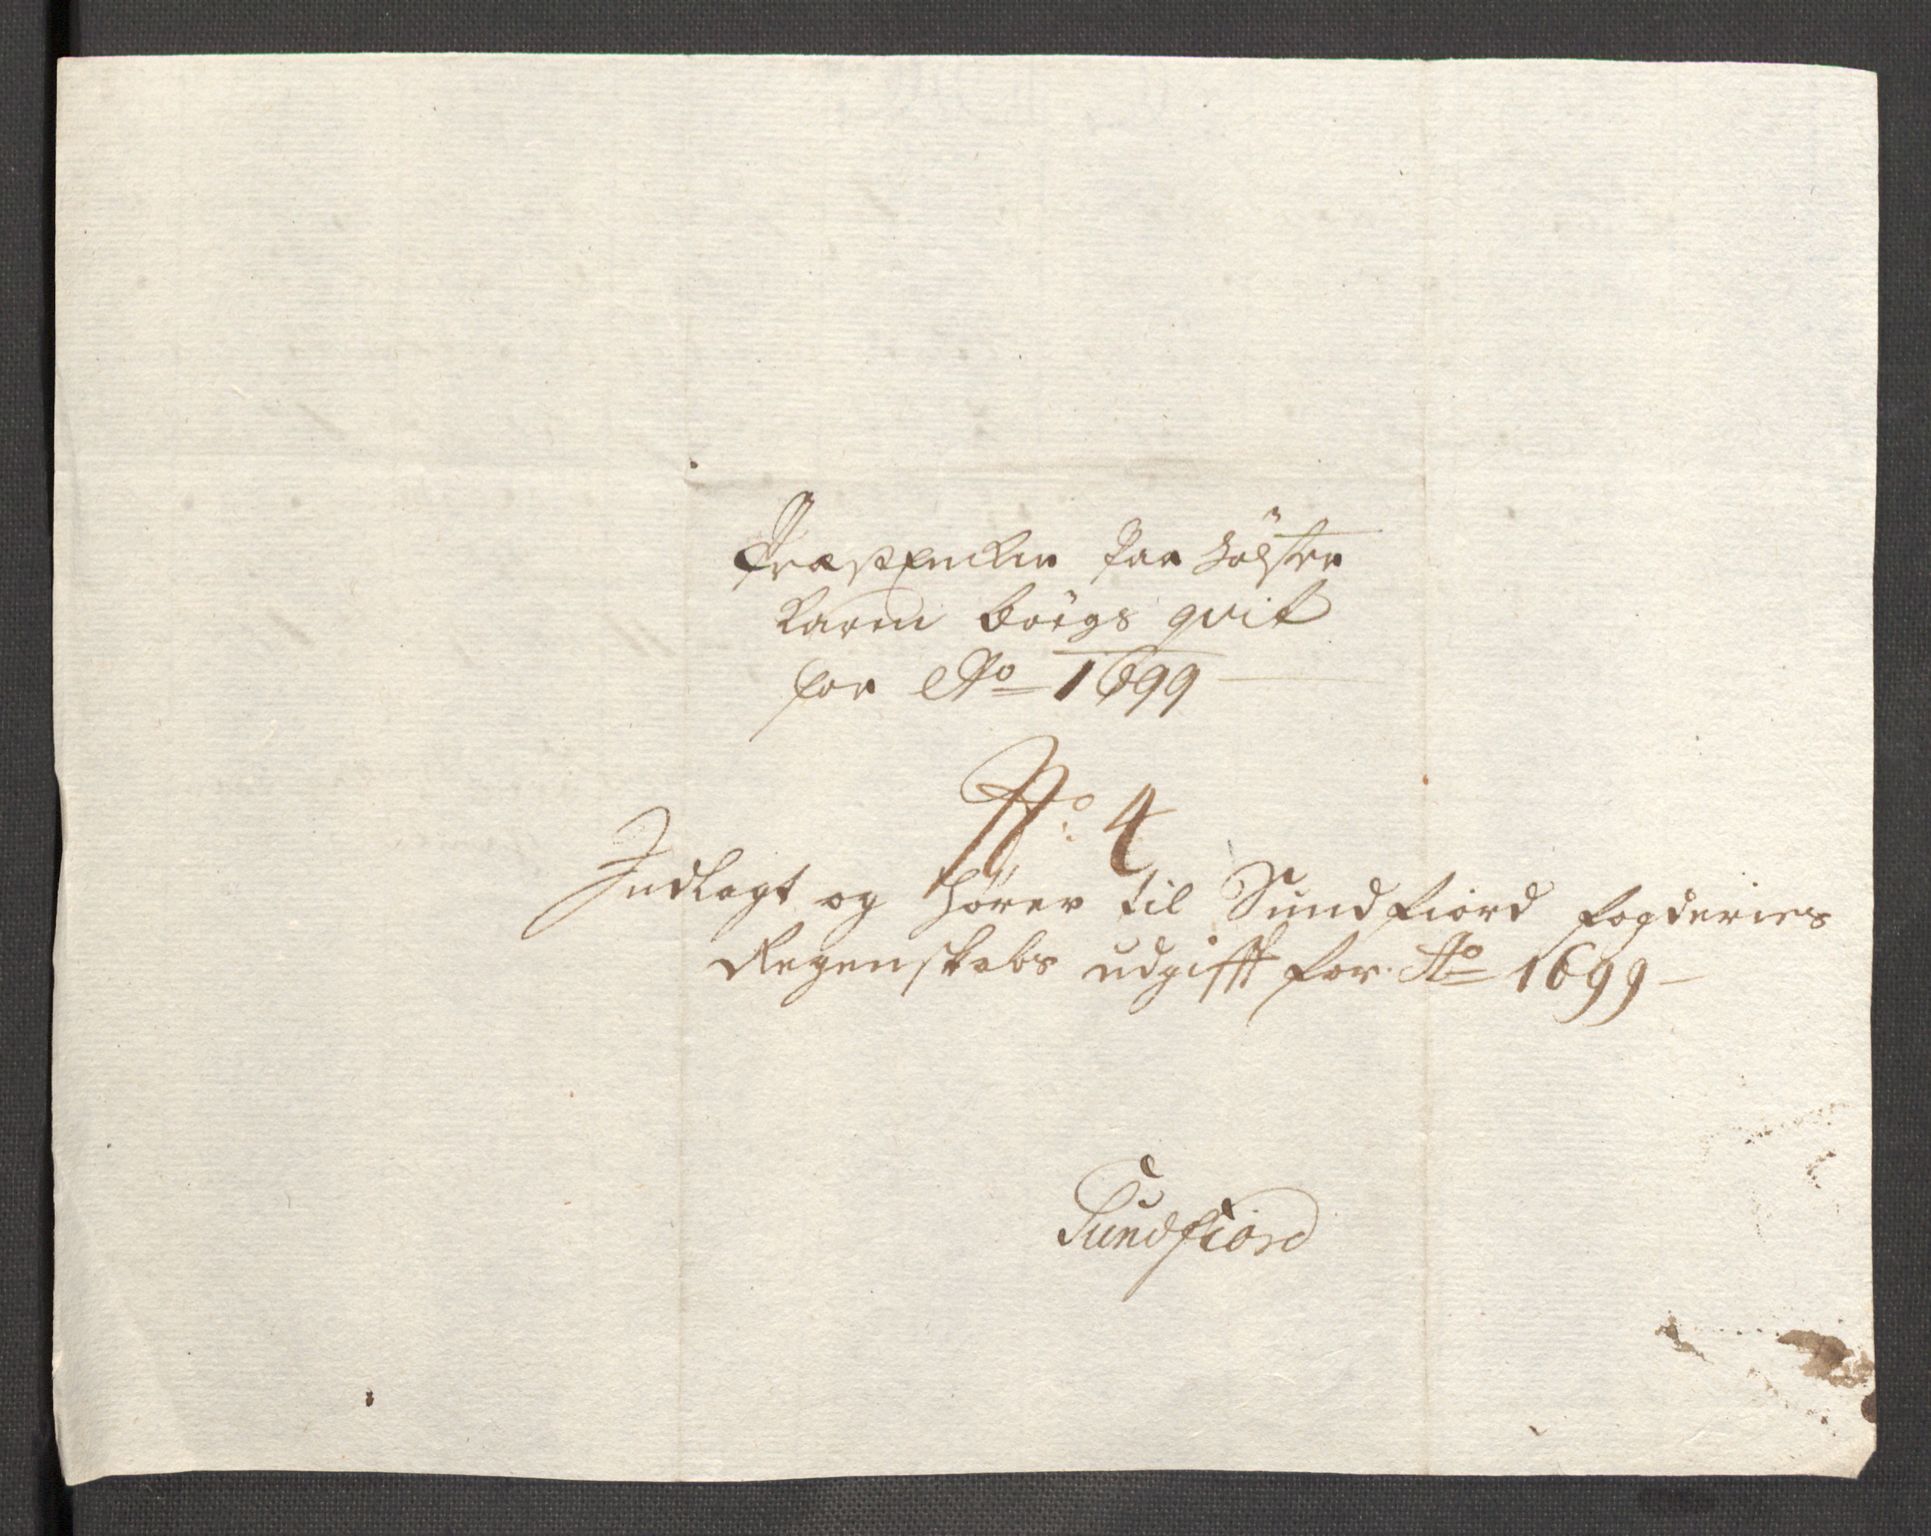 Præstencken paa Jölster
Karen börgs qvit
for Ao 1699
No. 4
Indlagt og hörer til Sundfiord fogderies
Regenskabs udgifft for Ao 1699
Sundfiord